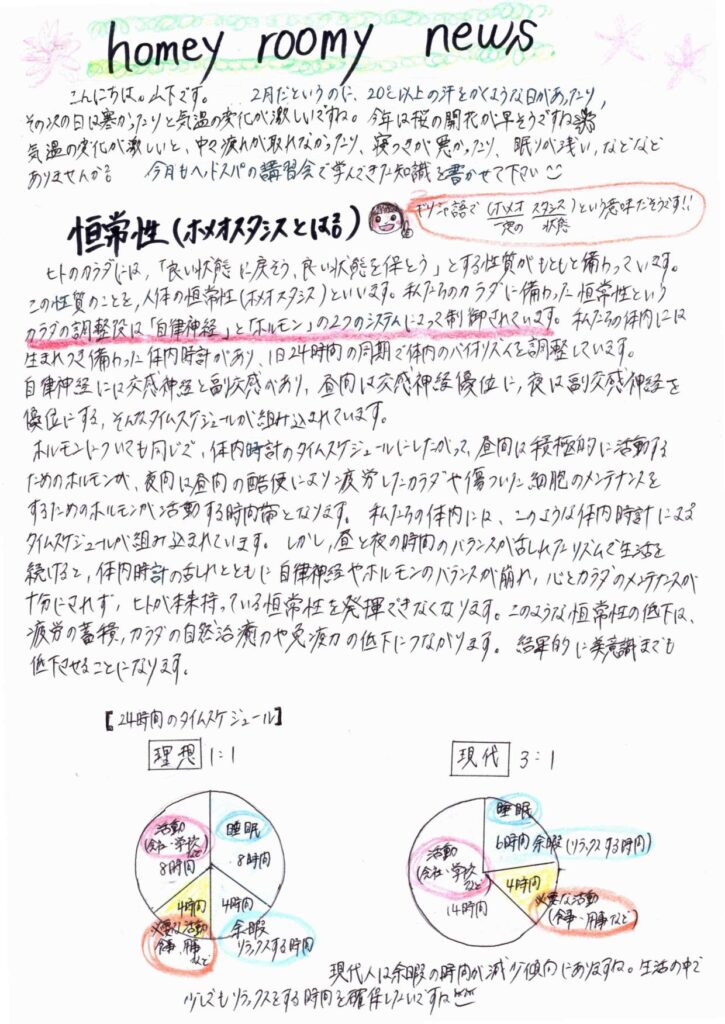 homey roomy news
こんにちは。山下です。 2月だというのに、20℃以上の汗をかくような日があったり、
その次の日は寒かったりと気温の変化が激しいですね。今年は桜の開花が早そうですね
気温の変化が激しいと、中々疲れが取れなかったり、寝つきが悪かったり、眠りが浅い、などなど
ありませんか? 今月もヘッドスパの講習会で学んできた知識を書かせて下さい
恒常性(ホメオスタシスとは?)
ギリシャ語で(ホメオ スタシス)という意味だそうです!!
一定の 状態
ヒトのカラダには、「良い状態に戻そう、良い状態を保とう」とする性質がもともと備わっています。
この性質のことを、人体の恒常性(ホメオスタシス)といいます。私たちのカラダに備わった恒常性という
カラダの調整役は「自律神経」と「ホルモン」の2つのシステムによって制御されています。私たちの体内には
生まれつき備わった体内時計があり、1日24時間の周期で体内のバイオリズムを調整しています。
自律神経には交感神経と副交感があり、昼間は交感神経優位に、夜は副交感神経を
優位にする、そんなタイムスケジュールが組み込まれています。
ホルモンについても同じで、体内時計のタイムスケジュールにしたがって、昼間は積極的に活動する
ためのホルモンが、夜間は昼間の酷使により疲労したカラダや傷ついた細胞のメンテナンスを
するためのホルモンが活動する時間帯となります。私たちの体内には、このような体内時計による
タイムスケジュールが組み込まれています。しかし、昼と夜の時間のバランスが乱れたリズムで生活を
続けると、体内時計の乱れとともに自律神経やホルモンのバランスが崩れ、心とカラダのメンテナンスが
十分にされず、ヒトが本来持っている恒常性を発揮できなくなります。このような恒常性の低下は、
疲労の蓄積、カラダの自然治癒力や免疫力の低下につながります。結果的に美意識までも
低下させることになります。
【24時間のタイムスケジュール】
理想 1:1
活動
(会社・学校
など)
8時間
睡眠
8時間
4時間
必要な活動
食事、用事
など
4時間
余暇
リラックスする時間
現代 3:1
睡眠
6時間
余暇(リラックスする時間)
活動
(会社・学校
など)
14時間
4時間
必要な活動
(食事・用事など)
現代人は余暇の時間が減少傾向にありますね。生活の中で
少しでもリラックスをする時間を確保したいですね